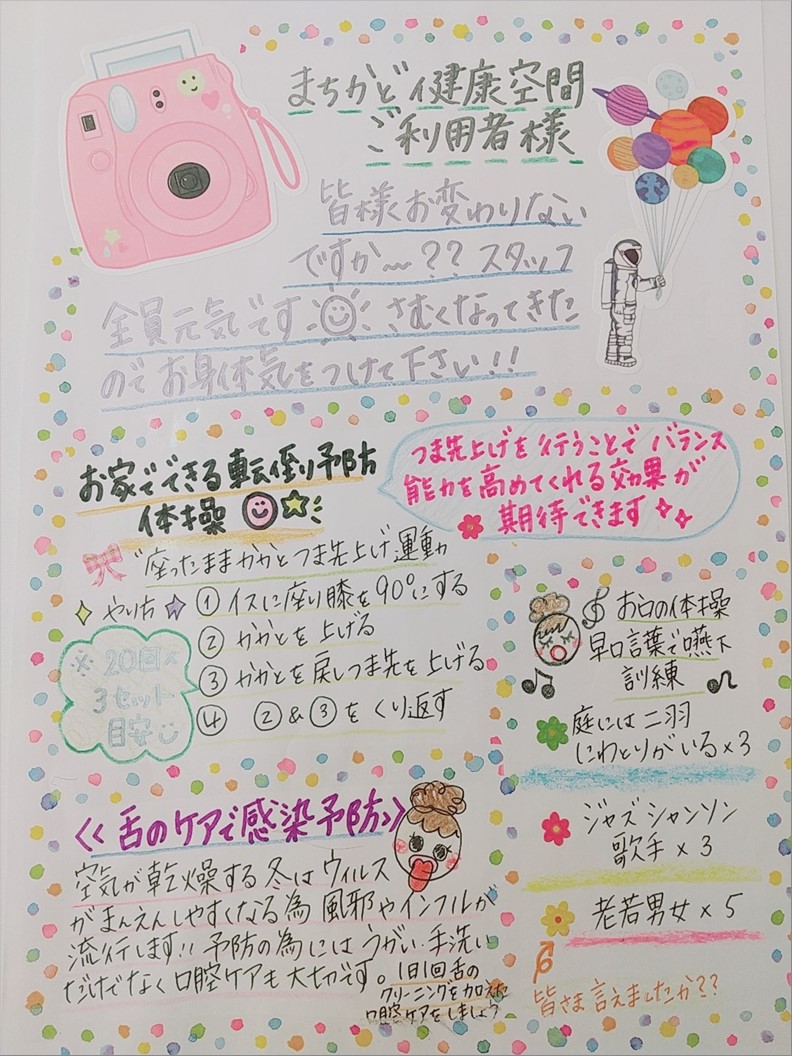 まちかど健康空間
ご利用者様
皆様お変わりない
ですか〜?? スタッフ
全員元気です さむくなってきた
のでお身体気をつけて下さい!!
お家でできる転倒予防
体操
つま先上げを行うことでバランス
能力を高めてくれる効果が
期待できます
"座ったままかかとつま先上げ運動
やり方 ① イスに座り膝を90°にする
② かかとを上げる
③ かかとを戻しつま先を上げる
④ ②&③をくり返す
※ 20回×
3セット
目安
お口の体操
早口言葉で嚥下
訓練
庭には二羽
にわとりがいる×3
ジャズシャンソン
歌手×3
老若男女×5
皆さま言えましたか??
<<舌のケアで感染予防>>
空気が乾燥する冬はウィルス
がまんえんしやすくなる為風邪やインフルが
流行します!! 予防の為にはうがい手洗い
だけでなく口腔ケアも大切です。1日1回舌の
クリーニングを加えた
口腔ケアをしましょう